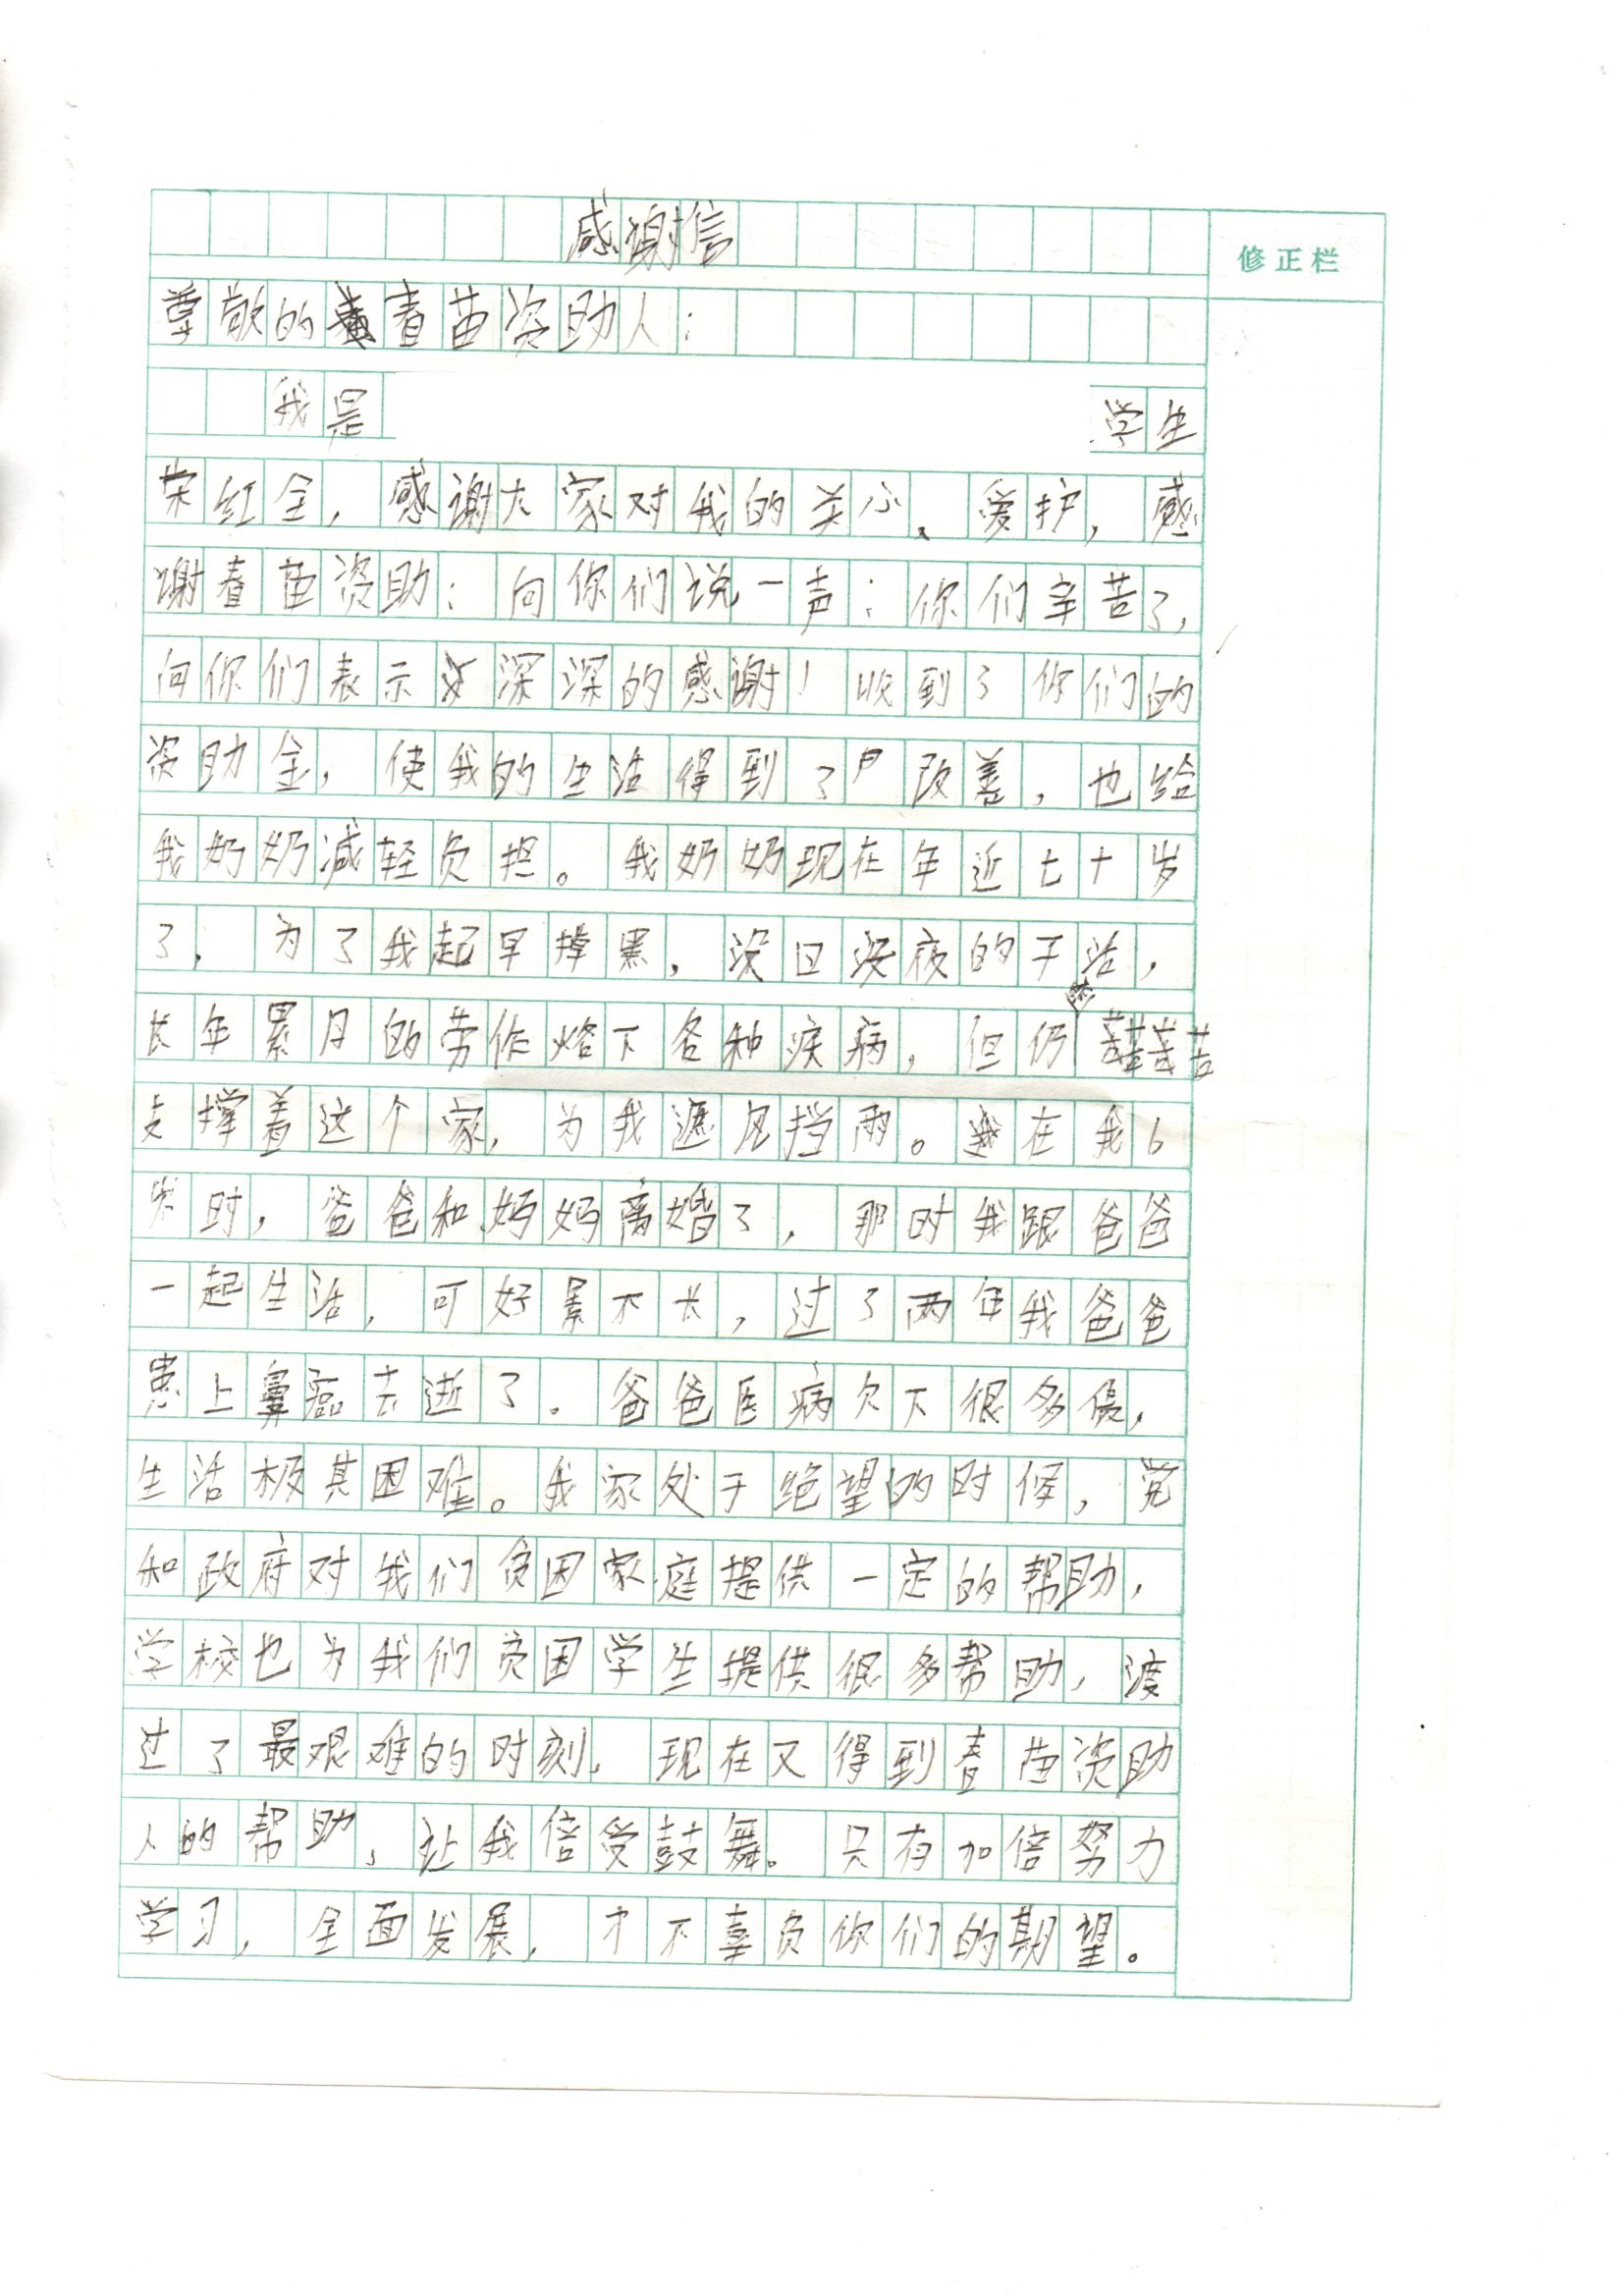 感谢信
修正栏
尊敬的春苗资助人：
我是 学生
荣红全，感谢大家对我的关心、爱护，感
谢春苗资助；向你们说一声：你们辛苦了，
向你们表示深深的感谢！收到了你们的
资助金，使我的生活得到了改善，也给
我奶奶减轻负担。我奶奶现在年近七十岁
了，为了我起早摸黑，没日没夜的干活，
长年累月的劳作烙下各种疾病，但仍苦苦
支撑着这个家，为我遮风挡雨。在我6
岁时，爸爸和妈妈离婚了，那时我跟爸爸
一起生活，可好景不长，过了两年我爸爸
患上鼻癌去逝了。爸爸医病欠下很多债，
生活极其困难。我家处于绝望的时候，党
和政府对我们贫困家庭提供一定的帮助，
学校也为我们贫困学生提供很多帮助，渡
过了最艰难的时刻，现在又得到春苗资助
人的帮助，让我倍受鼓舞。只有加倍努力
学习，全面发展，才不辜负你们的期望。